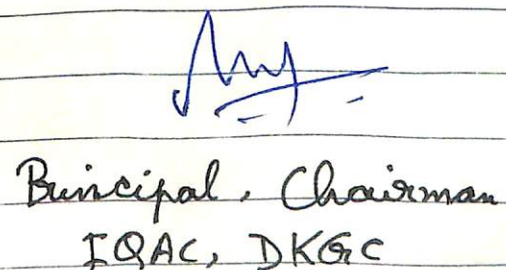 Principal, Chairman
IQAC, DKGC